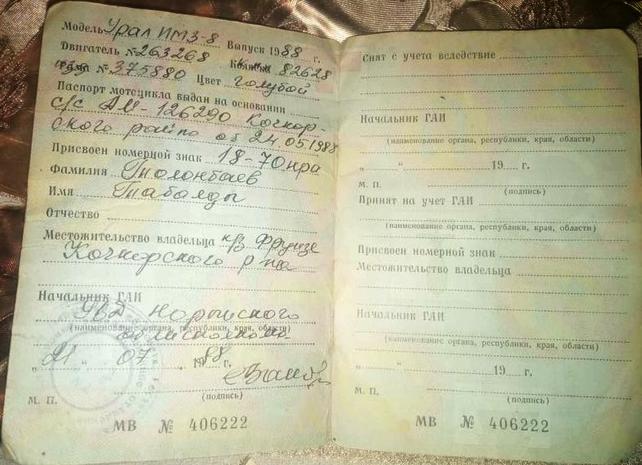 Модель Урал ИМЗ-8 Выпуск 1988 г.
Двигатель № 263268 82628
Рама № 375880 Цвет голубой
Паспорт мотоцикла выдан на основании
с/с АМ-126290 Кочкор-
ского райпо от 24.05.1988
Присвоен номерной знак 18-70 нра
Фамилия Толонбаев
Имя Табалды
Отчество
Местожительство владельца к/з Фрунзе
Кочкорского р-на
Начальник ГАИ
УВД Нарынского
(наименование органа, республики, края, области)
облисполкома
21 " 07 1988 г.
М. П. (подпись)
МВ № 406222
Снят с учета вследствие
Начальник ГАИ
(наименование органа, республики, края, области)
" " 19 г.
М. П. (подпись)
Принят на учет ГАИ
(наименование органа, республики, края, области)
Присвоен номерной знак
Местожительство владельца
Начальник ГАИ
(наименование органа, республики, края, области)
" " 19 г.
М. П. (подпись)
МВ № 406222